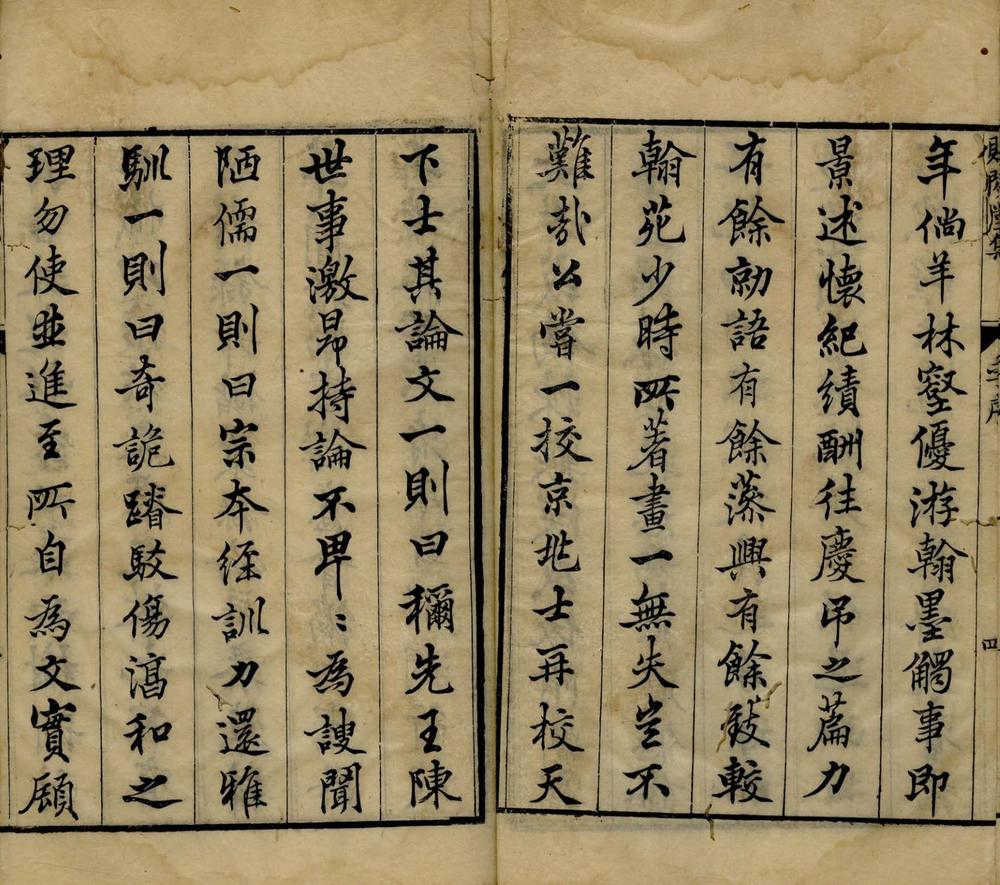 年倘羊林壑優游翰墨觸事即
景述懷紀績酬往慶吊之篇力
有餘勍語有餘藻興有餘致較
翰苑少時所著畫一無失豈不
難哉公嘗一校京兆士再校天
下士其論文一則曰稱先王陳
世事激昂持論不卑〻為謏聞
陋儒一則曰宗本經訓力還雅
馴一則曰奇詭踳駁傷澑和之
理勿使並進至所自為文實顧